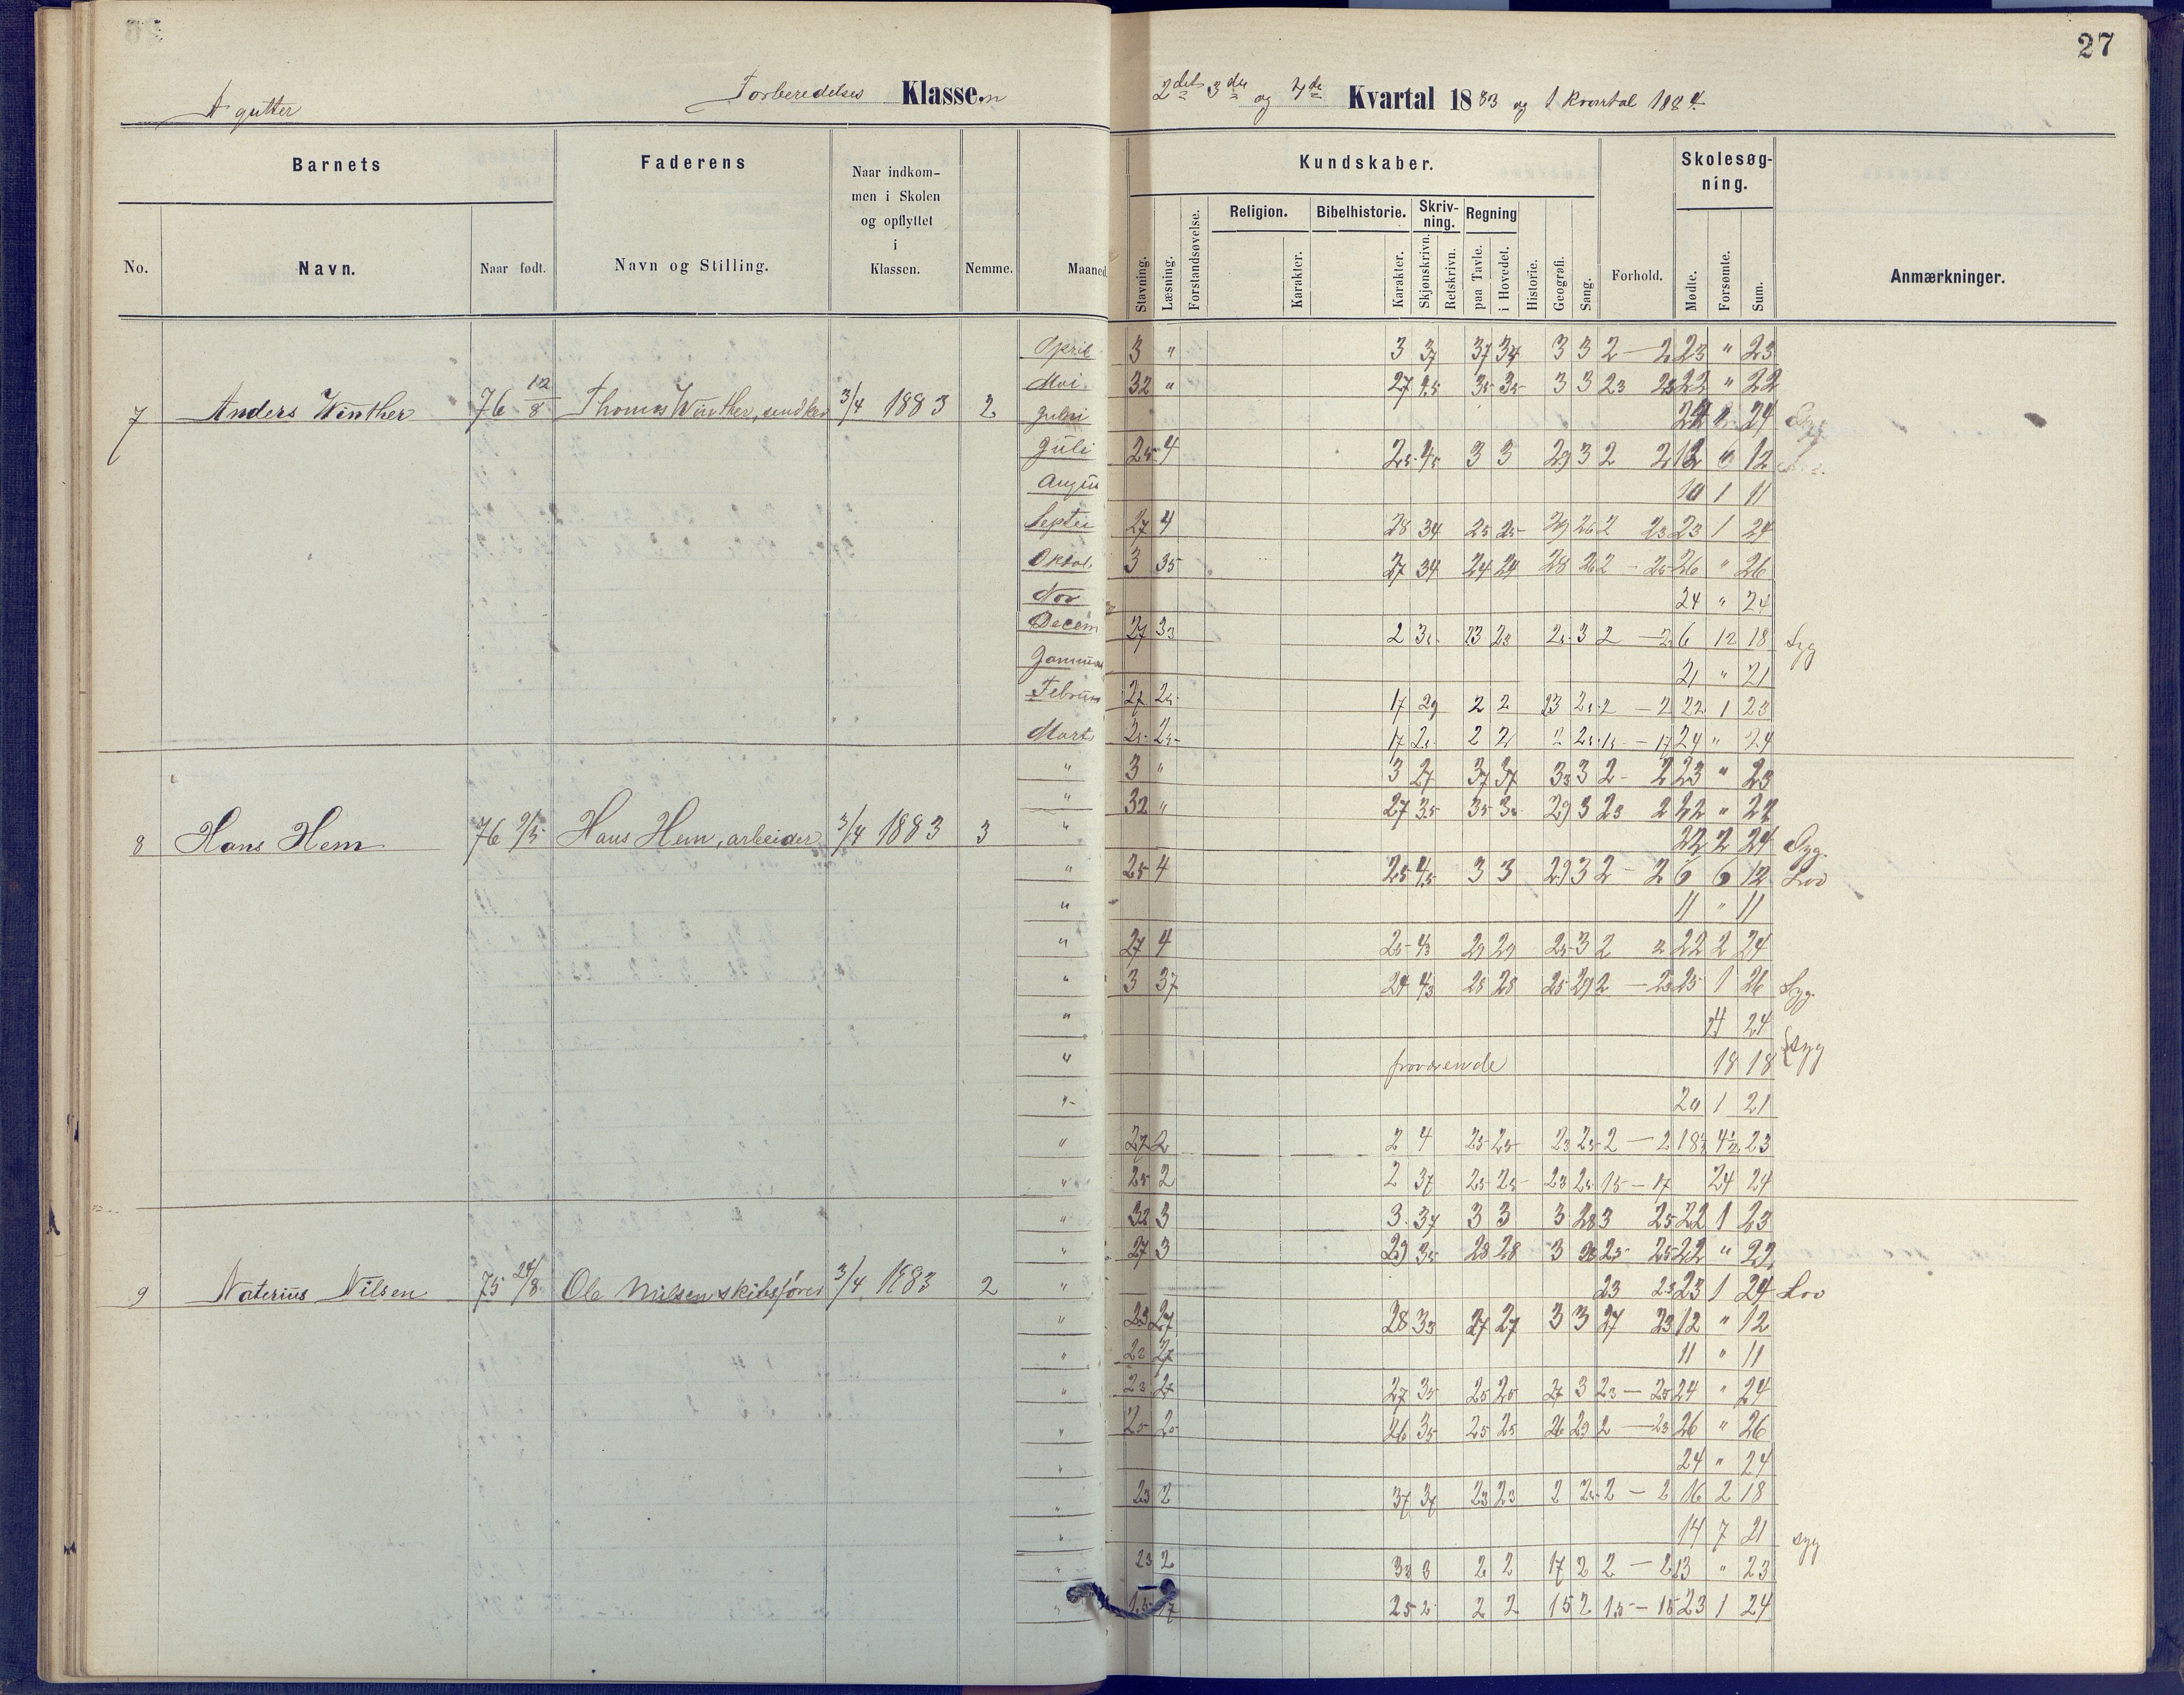 27
A gutter
Forberedelses Klassen
2det 3die og 4de Kvartal 1883 og 1 Kvartal 1884
Barnets
Faderens
Naar indkommen i Skolen og opflyttet i Klassen.
Nemme.
Maaned.
Kundskaber.
Forhold.
Skolesøgning.
Anmærkninger.
No.
Navn.
Naar født.
Navn og Stilling.
Stavning.
Læsning.
Forstandsøvelse.
Religion.
Karakter.
Bibelhistorie.
Karakter.
Skrivning.
Skjønskrivn.
Retskrivn.
Regning
paa Tavle.
i Hovedet.
Historie.
Geografi.
Sang.
Mødte.
Forsømte.
Sum.
7 Anders Winther 76 12/8 Thomas Winther, 3/4 1883 2
April 3 " 3 37 37 34 3 3 2 - 2 23 " 23
Mai 32 " 27 45 35 35 3 3 23 23 22 " 22
Juni 24
Juli 25 4 25 45 3 3 29 3 2 2 12 12
Augu 10 1 11
Septe 27 4 28 34 25 25 29 26 2 23 23 1 24
Oktob. 3 35 27 34 24 24 28 26 2 - 25 26 " 26
Nov 24 " 24
Decem 27 33 2 35 23 23 25 3 2 - 2 6 12 18 Syg
Januar 21 " 21
Februar 27 25 17 29 2 2 23 25 2 - 2 22 1 23
Marts 25 25 17 25 2 2 2 25 15 - 17 24 " 24
8 Hans Hem 76 9/5 Hans Hem, arbeider 3/4 1883 3
" 3 " 3 27 37 37 33 3 2 - 2 23 " 23
" 32 " 27 35 35 35 29 3 23 2 22 " 22
" 22 2 24 Syg.
" 25 4 25 45 3 3 29 3 2 - 2 6 6 12 Lov
" 11 " 11
" 27 4 25 43 29 29 25 3 2 2 22 2 24
" 3 37 24 43 28 28 25 29 2 - 23 25 1 26 Syg
" 24 24
" fraværende 18 18 syg
" 20 1 21
" 27 2 2 4 25 25 23 25 2 - 2 18½ 4½ 23
" 25 2 2 37 25 25 23 25 15 - 17 24 24
9 Naterius Nilsen 75 24/8 Ole Nilsen skibsfører 3/4 1883 2
" 32 3 3 37 3 3 3 28 3 25 22 1 23
" 27 3 29 35 28 28 3 28 25 25 22 " 22
" 23 23 23 1 24 Lov
" 23 27 28 33 27 27 3 3 27 23 12 " 12
" 22 27 11 " 11
" 23 27 27 35 25 25 27 3 23 - 25 24 " 24
" 25 25 26 35 25 25 26 29 2 - 23 26 " 26
" 24 " 24
" 23 2 37 37 23 23 2 25 2 - 2 16 2 18
" 14 7 21 syg
" 23 2 33 3 2 2 17 2 2 - 2 23 " 23
" 15 17 25 2 2 2 15 2 15 - 15 23 1 24